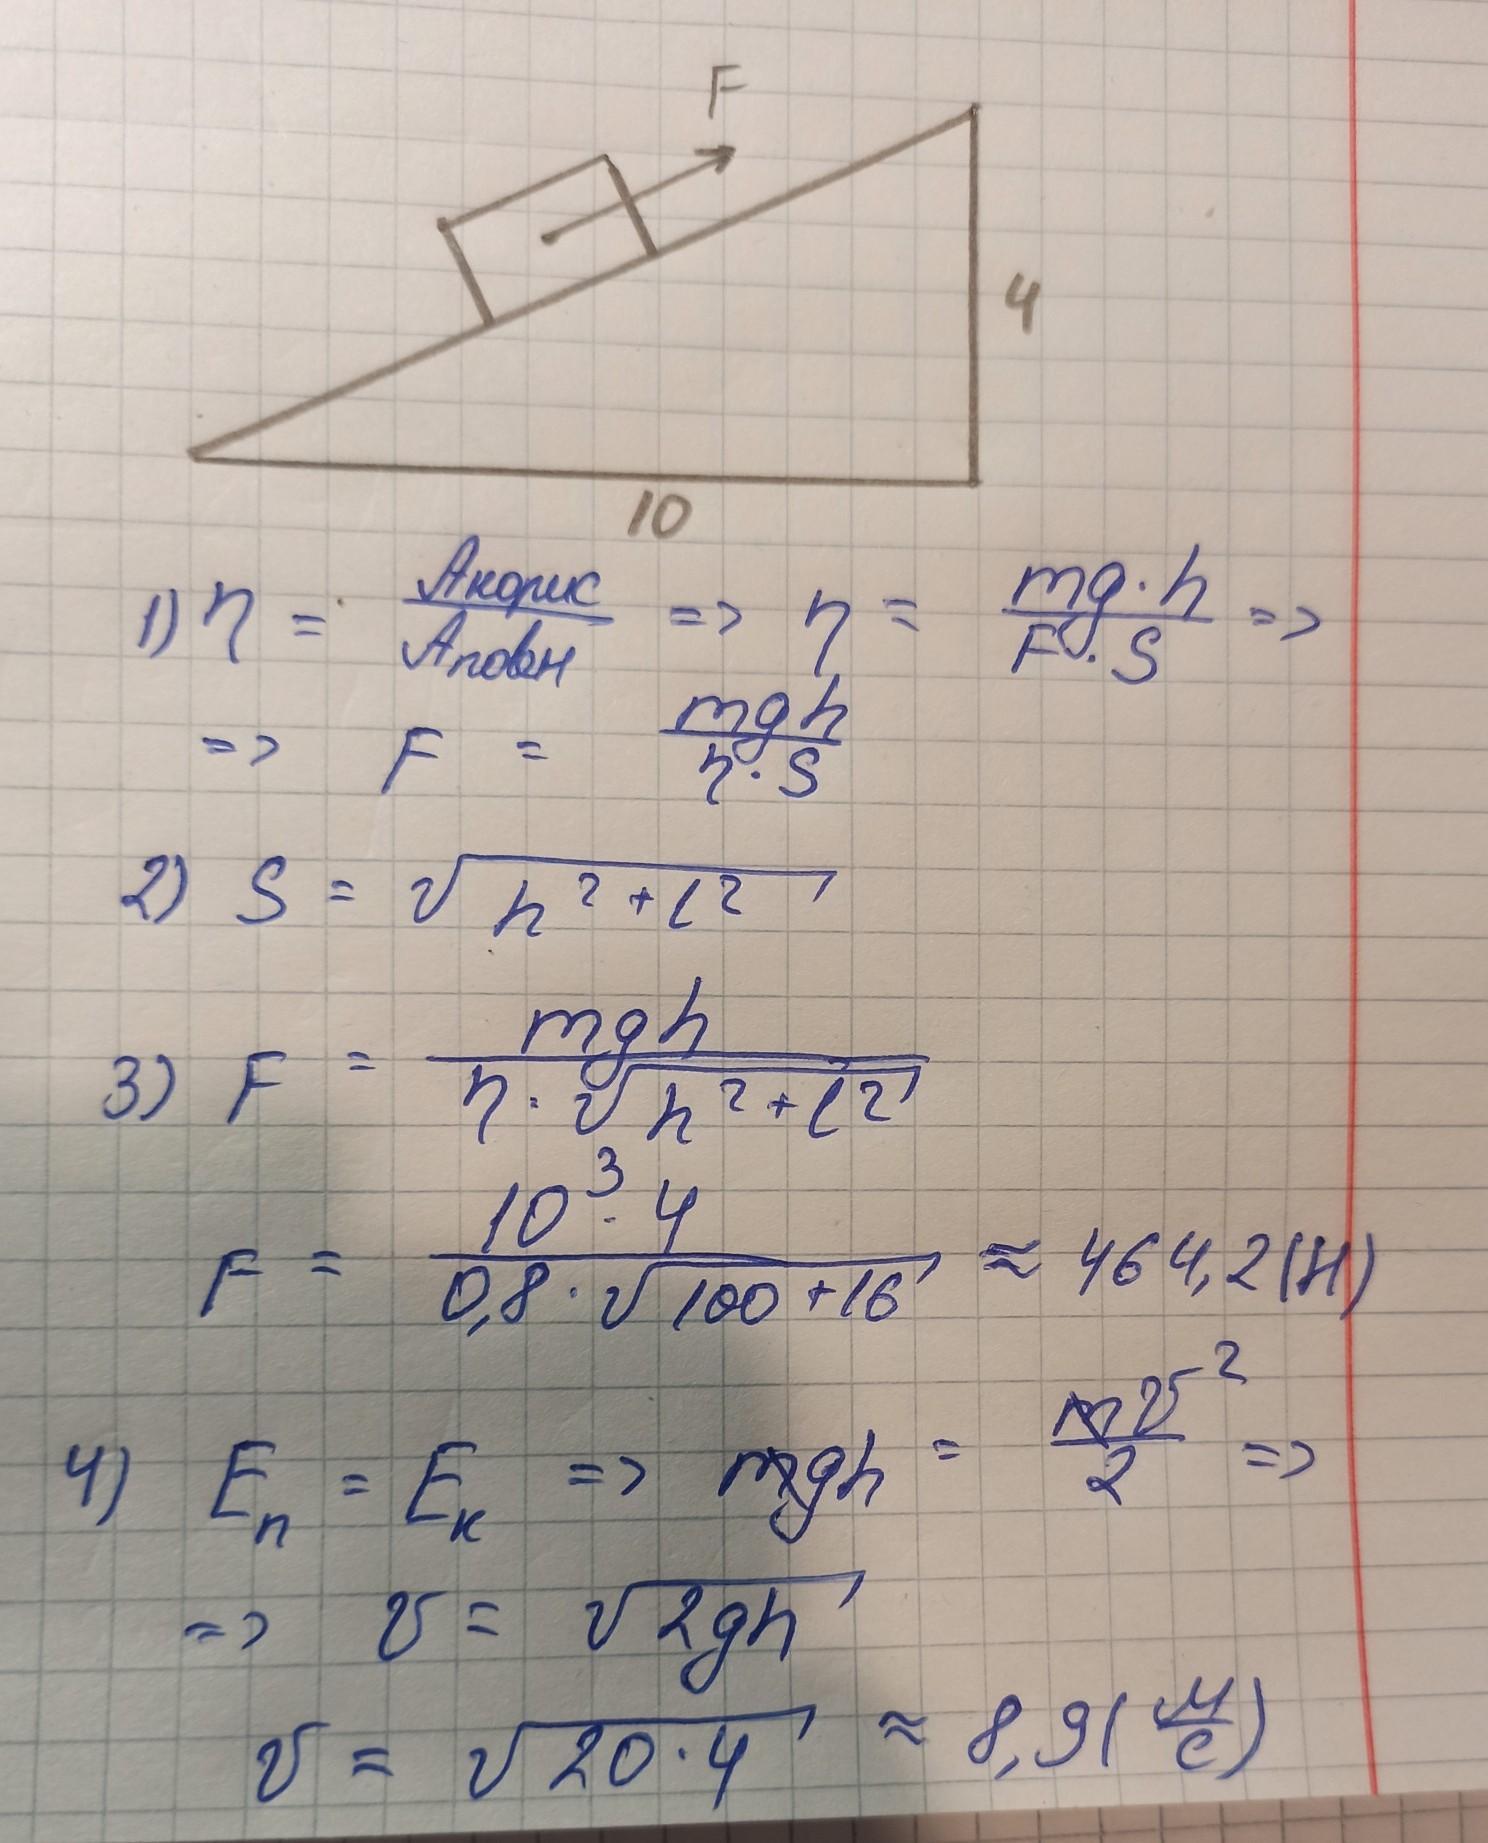 F
4
10
1) η = Aкорис/Aповн => η = mg·h/F·S =>
=> F = mgh/η·S
2) S = √(h² + l²)
3) F = mgh/η·√(h² + l²)
F = 10³·4/0,8·√(100+16) ≈ 464,2(Н)
4) Eп = Eк => mgh = mv²/2 =>
=> v = √(2gh)
v = √(20·4) ≈ 8,9(м/с)